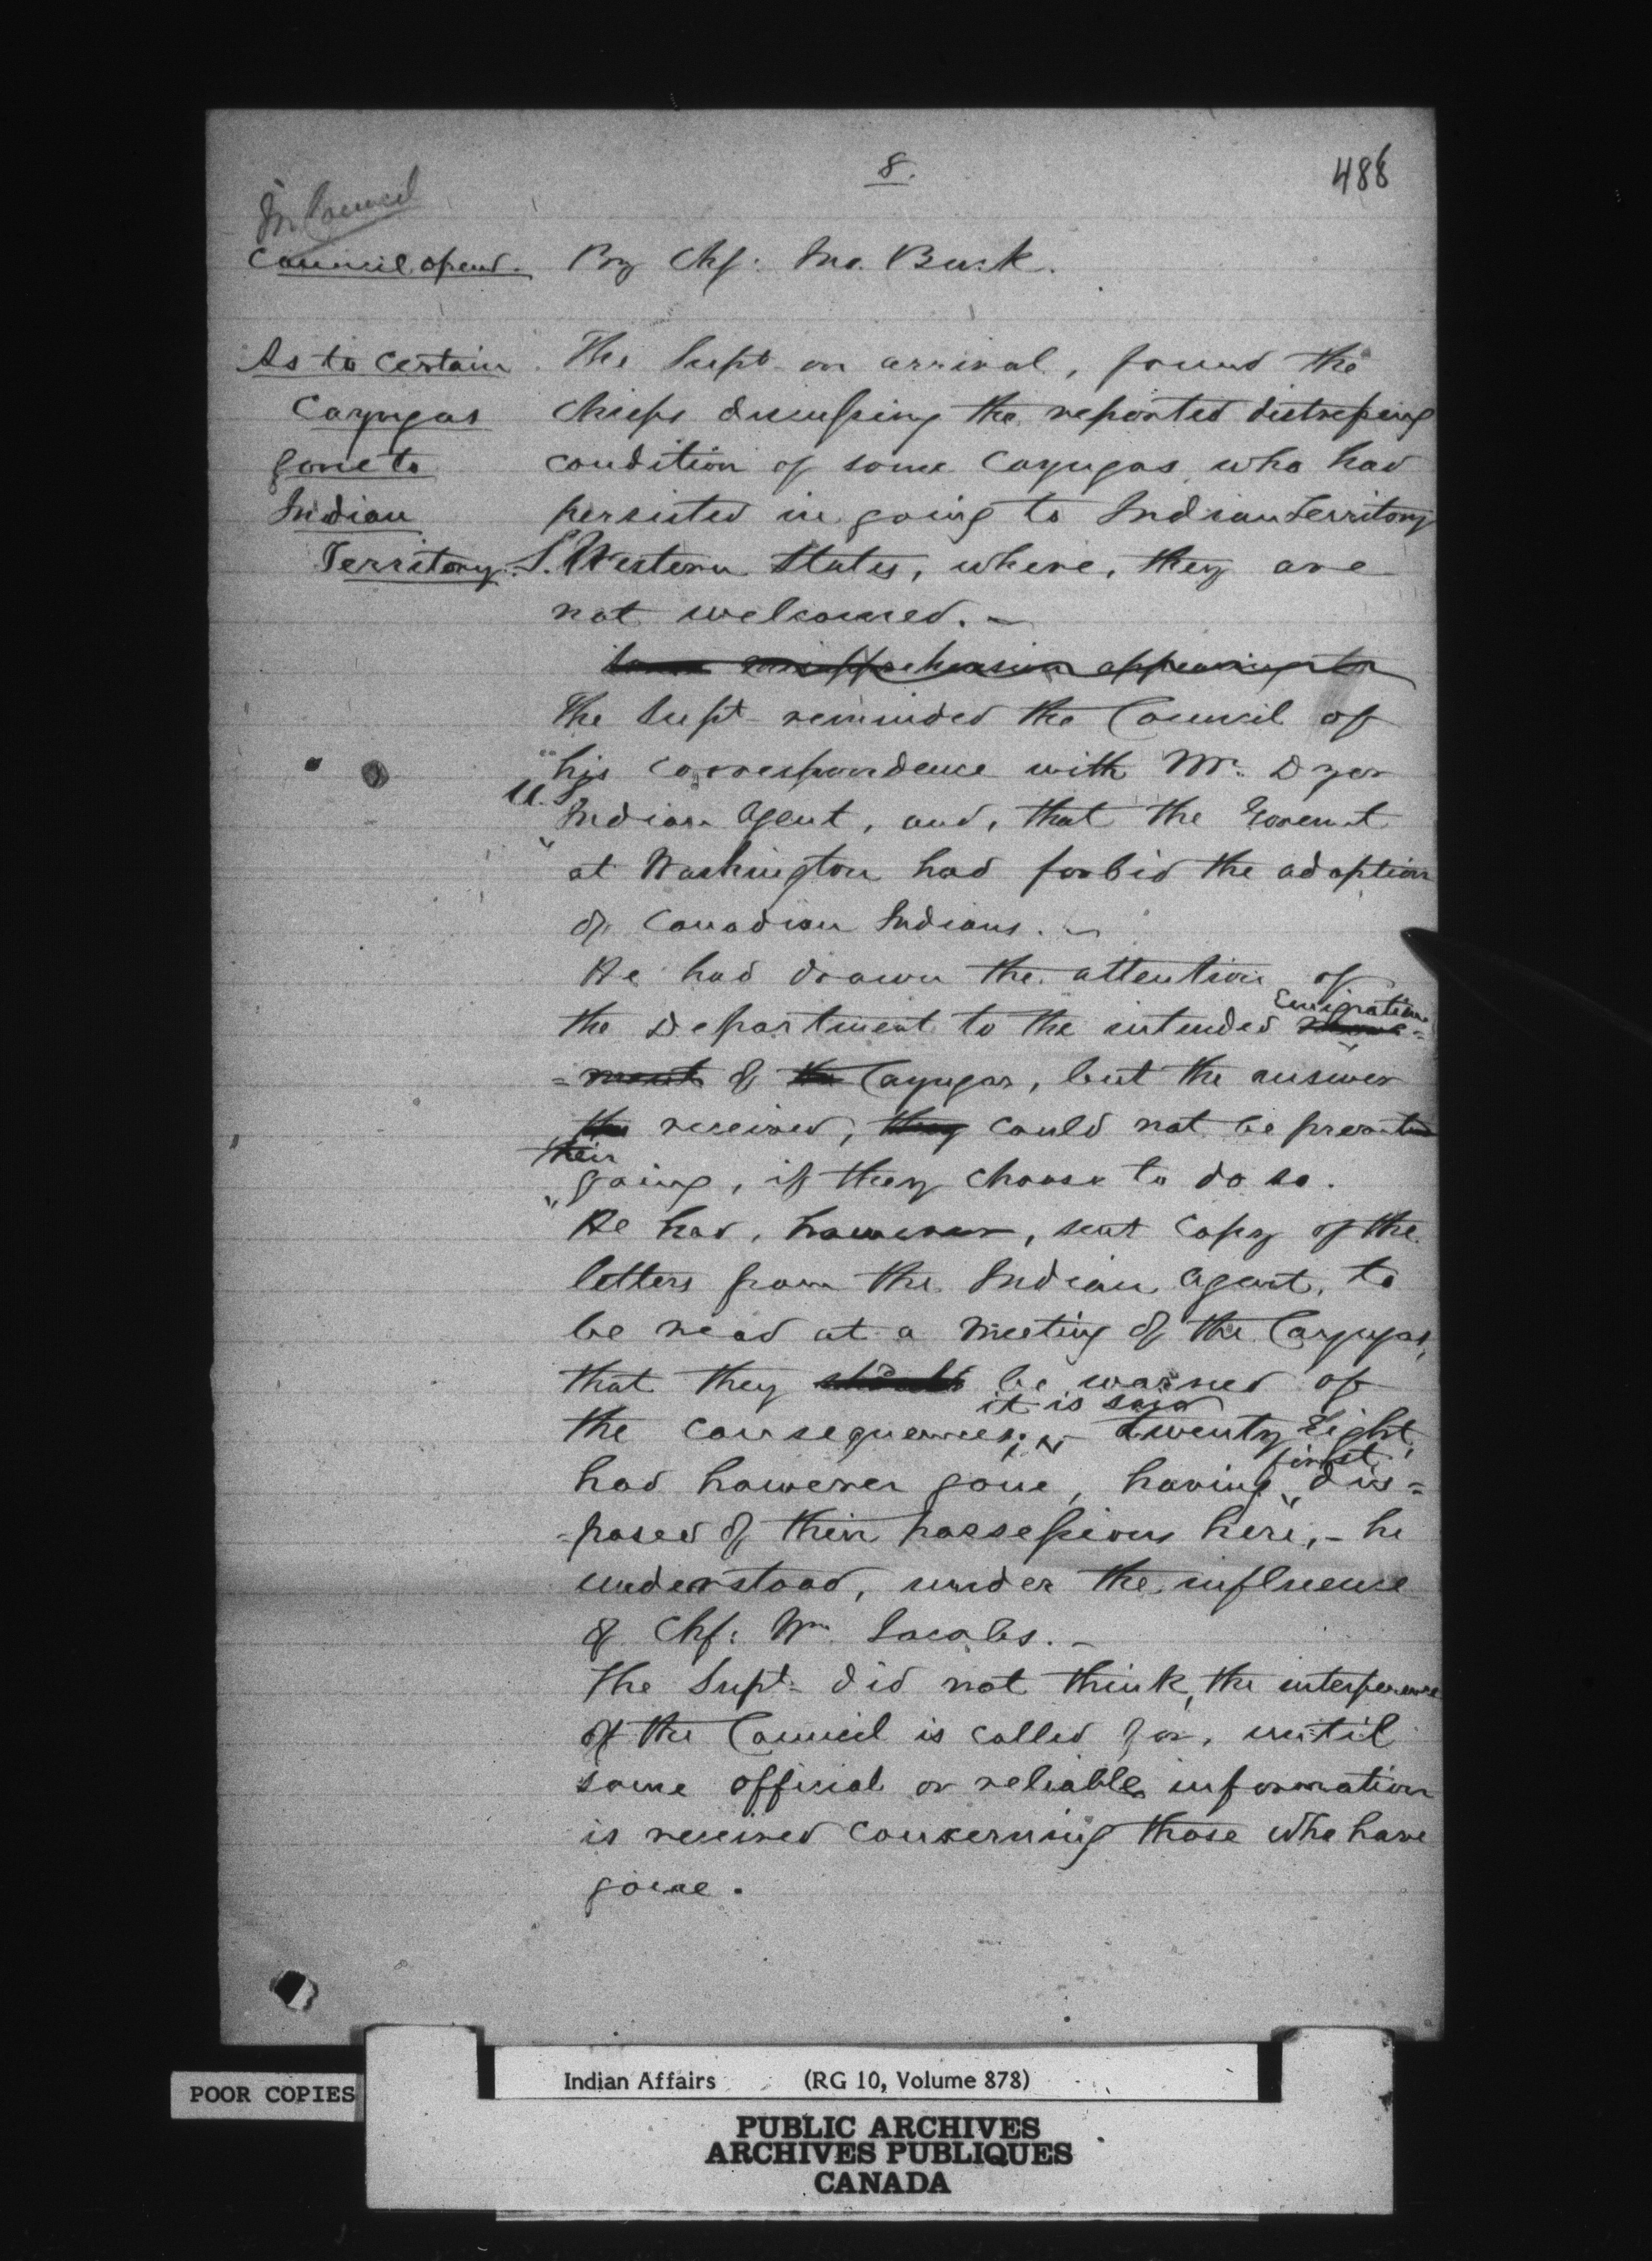 8.
488
In Council
Council opend. By Chf: Jno. Buck.
As to certain The Supt on arrival, found the
Cayugas chiefs discussing the reported distressing
gone to condition of some Cayugas who had
Indian persisted in going to Indian Territory
Territory. S. Western States, where, they are
not welcomed. –
misapprehension appearing to
The Supt reminded the Council of
his correspondence with Mr. Dyer
U.S.
Indian Agent, and, that the Governt
at Washington had forbid the adoption
of Canadian Indians. –
He had drawn the attention of
Emigration
the Department to the intended move=
=ment of the Cayugas, but the answer
the received, they could not be prevented
their
going, if they choose to do so.
He had, however, sent copy of the
letters from the Indian Agent, to
be read at a meeting of the Cayugas,
that they should be warned of
it is said
the consequences; – twenty Eight,
first
had however gone, having dis=
=posed of their possessions here, – he
understood, under the influence
of Chf: Wm. Jacobs. –
The Supt did not think, the interference
of the Council is called for, until
some official or reliable information
is received concerning those who have
gone.
POOR COPIES
Indian Affairs (RG 10, Volume 878)
PUBLIC ARCHIVES
ARCHIVES PUBLIQUES
CANADA